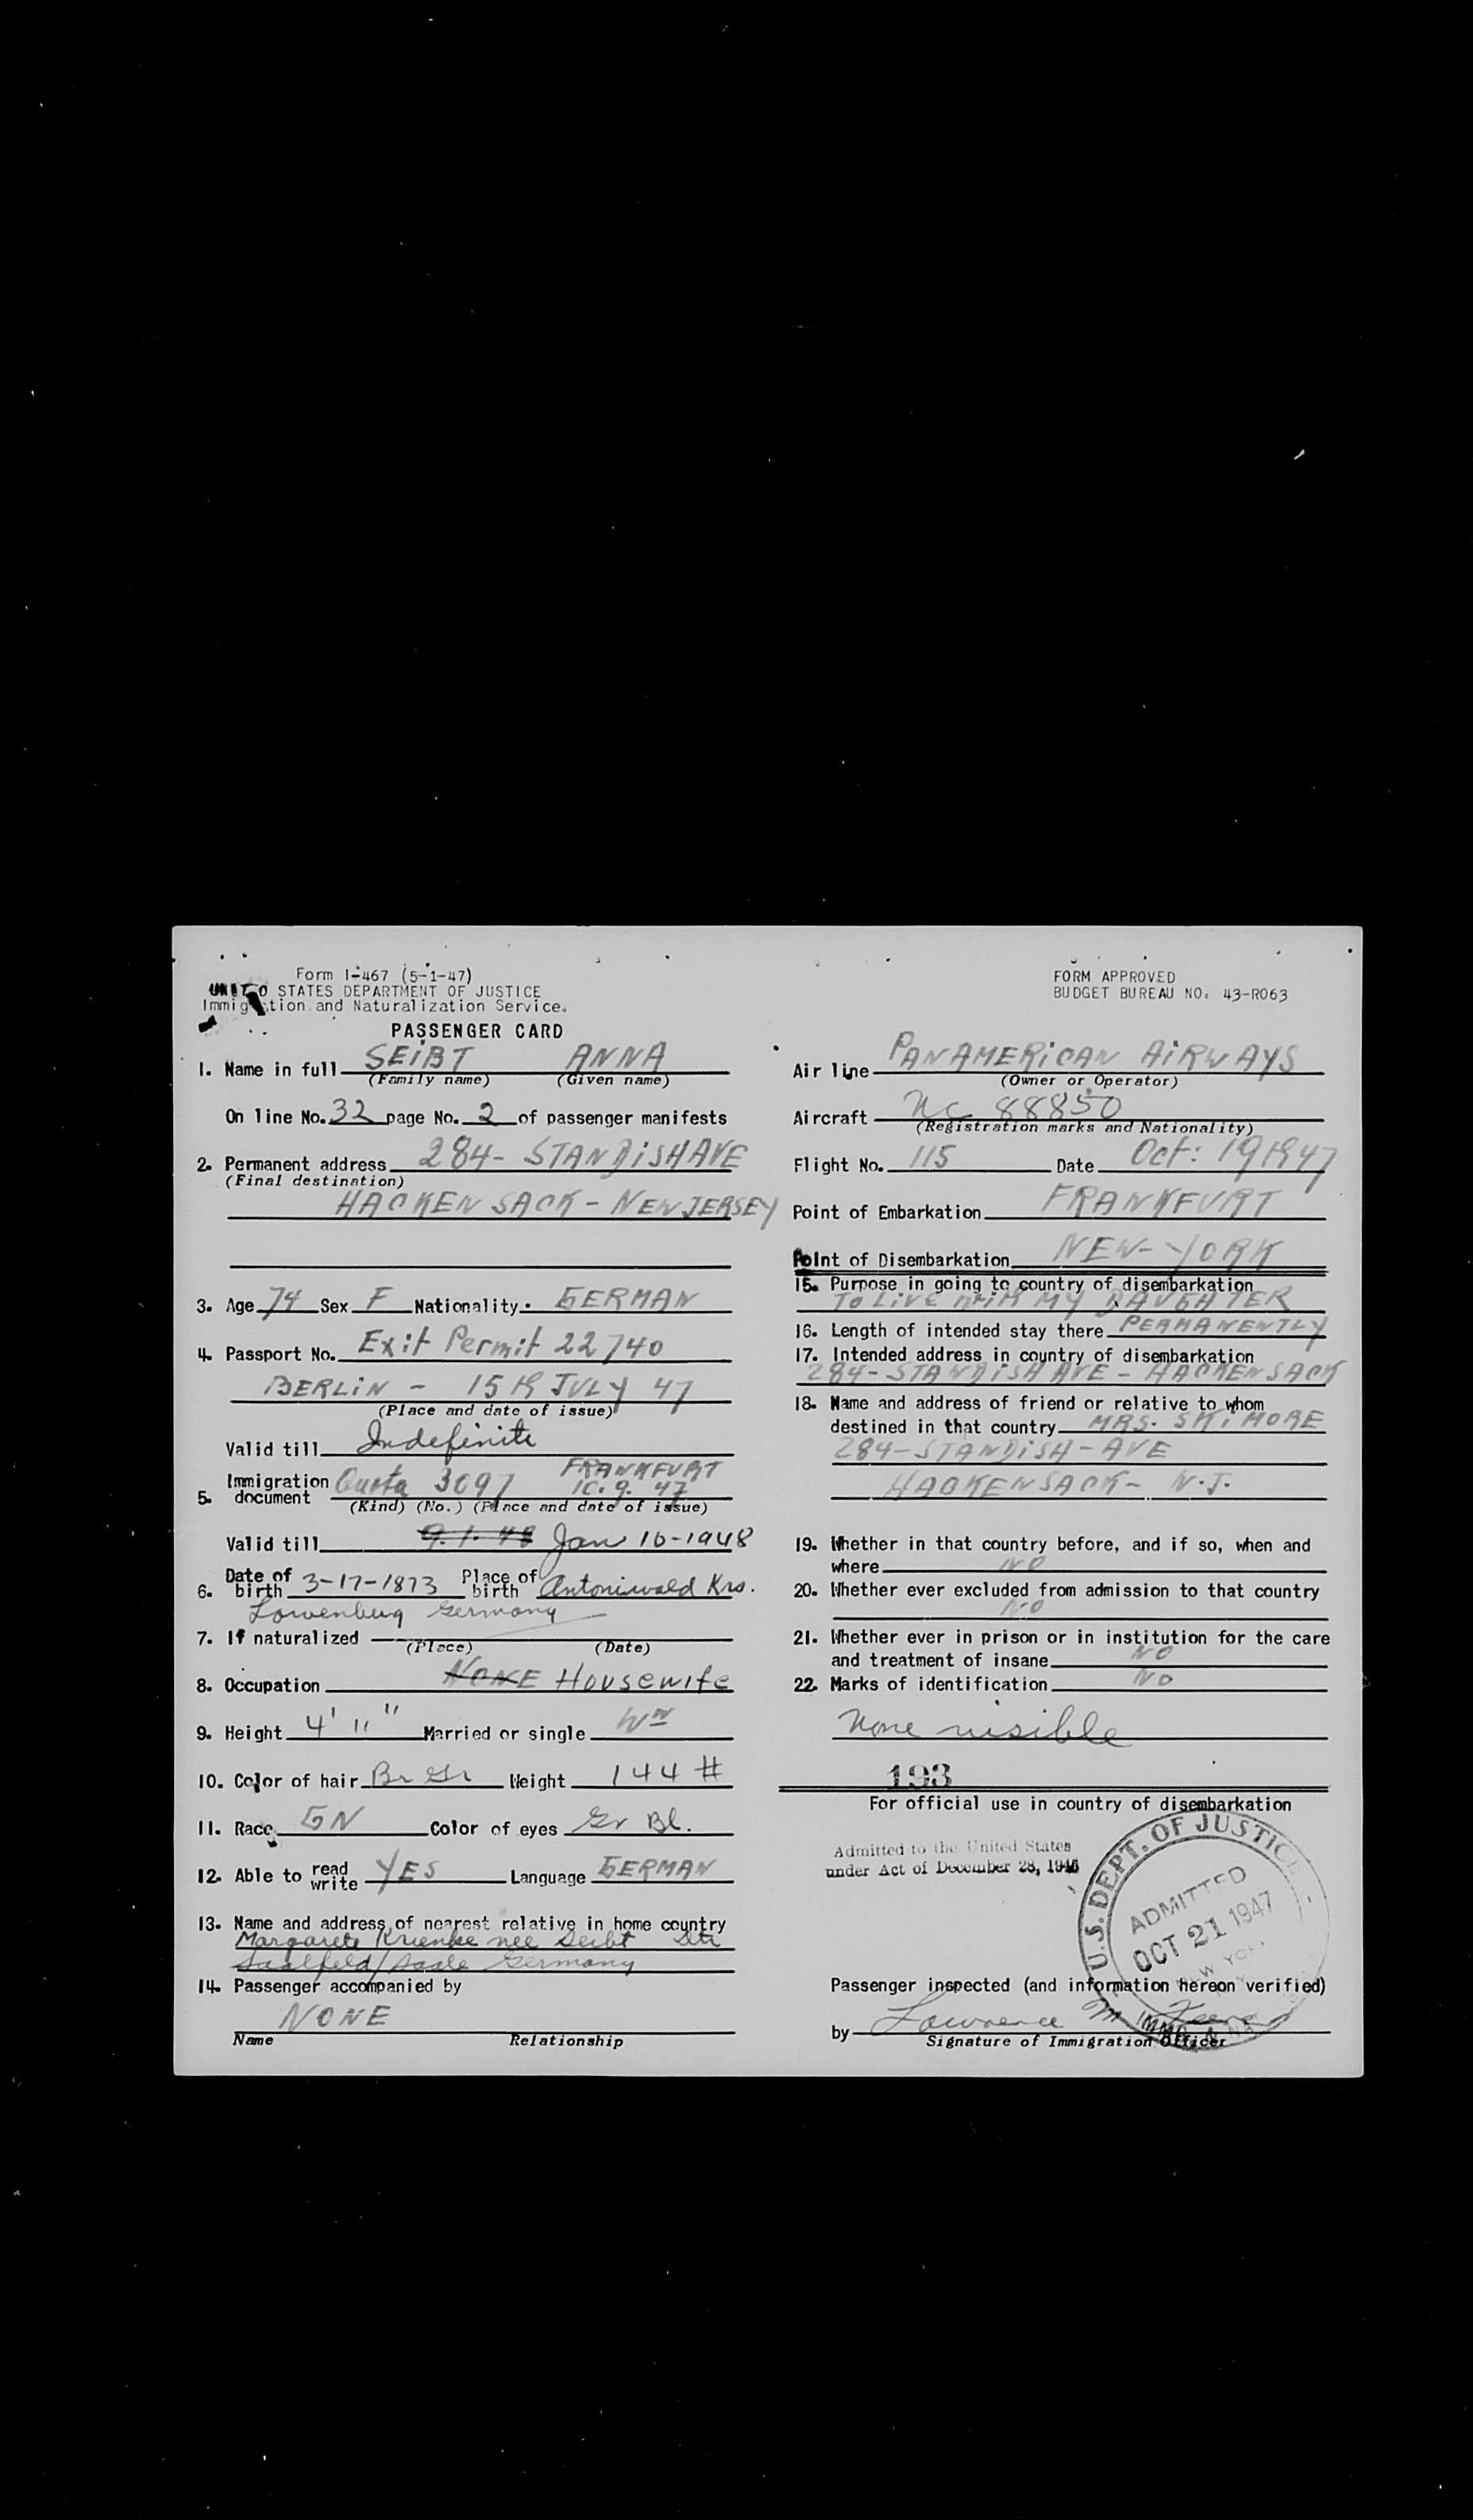 Form I-467 (5-1-47)
UNITED STATES DEPARTMENT OF JUSTICE
Immigration and Naturalization Service.
PASSENGER CARD
1. Name in full SEIBT ANNA
(Family name) (Given name)
On line No. 32 page No. 2 of passenger manifests
2. Permanent address 284- STANDISH AVE
(Final destination)
HACKENSACK - NEW JERSEY
3. Age 74 Sex F Nationality. GERMAN
4. Passport No. Exit Permit 22740
BERLIN - 15 JULY 47
(Place and date of issue)
Valid till Indefinite
5. Immigration document Quota 3097 FRANKFURT 10.9.47
(Kind) (No.) (Place and date of issue)
Valid till 9.1.48 Jan 10-1948
6. Date of birth 3-17-1873 Place of birth Antoniwald Krs.
Lowenberg Germany
7. If naturalized
(Place) (Date)
8. Occupation NONE Housewife
9. Height 4' 11" Married or single WW
10. Color of hair Br Gr Weight 144 #
11. Race GN Color of eyes Gr Bl.
12. Able to read write YES Language GERMAN
13. Name and address of nearest relative in home country
Margarete Krienke nee Seibt
Saalfeld/Saale Germany
14. Passenger accompanied by
NONE
Name Relationship
FORM APPROVED
BUDGET BUREAU NO. 43-R063
Air line PANAMERICAN AIRWAYS
(Owner or Operator)
Aircraft NC 88850
(Registration marks and Nationality)
Flight No. 115 Date Oct: 19 1947
Point of Embarkation FRANKFURT
Point of Disembarkation NEW-YORK
15. Purpose in going to country of disembarkation
TO LIVE WITH MY DAUGHTER
16. Length of intended stay there PERMANENTLY
17. Intended address in country of disembarkation
284-STANDISH AVE - HACKENSACK
18. Name and address of friend or relative to whom
destined in that country MRS. SKIMORE
284-STANDISH-AVE
HACKENSACK- N.J.
19. Whether in that country before, and if so, when and
where NO
20. Whether ever excluded from admission to that country
NO
21. Whether ever in prison or in institution for the care
and treatment of insane NO
22. Marks of identification NO
None visible
193
For official use in country of disembarkation
Admitted to the United States
under Act of December 28, 1945
U.S. DEPT. OF JUSTICE
ADMITTED
OCT 21 1947
NEW YORK
IMMG. & NAT
Passenger inspected (and information hereon verified)
by Lawrence M
Signature of Immigration Officer